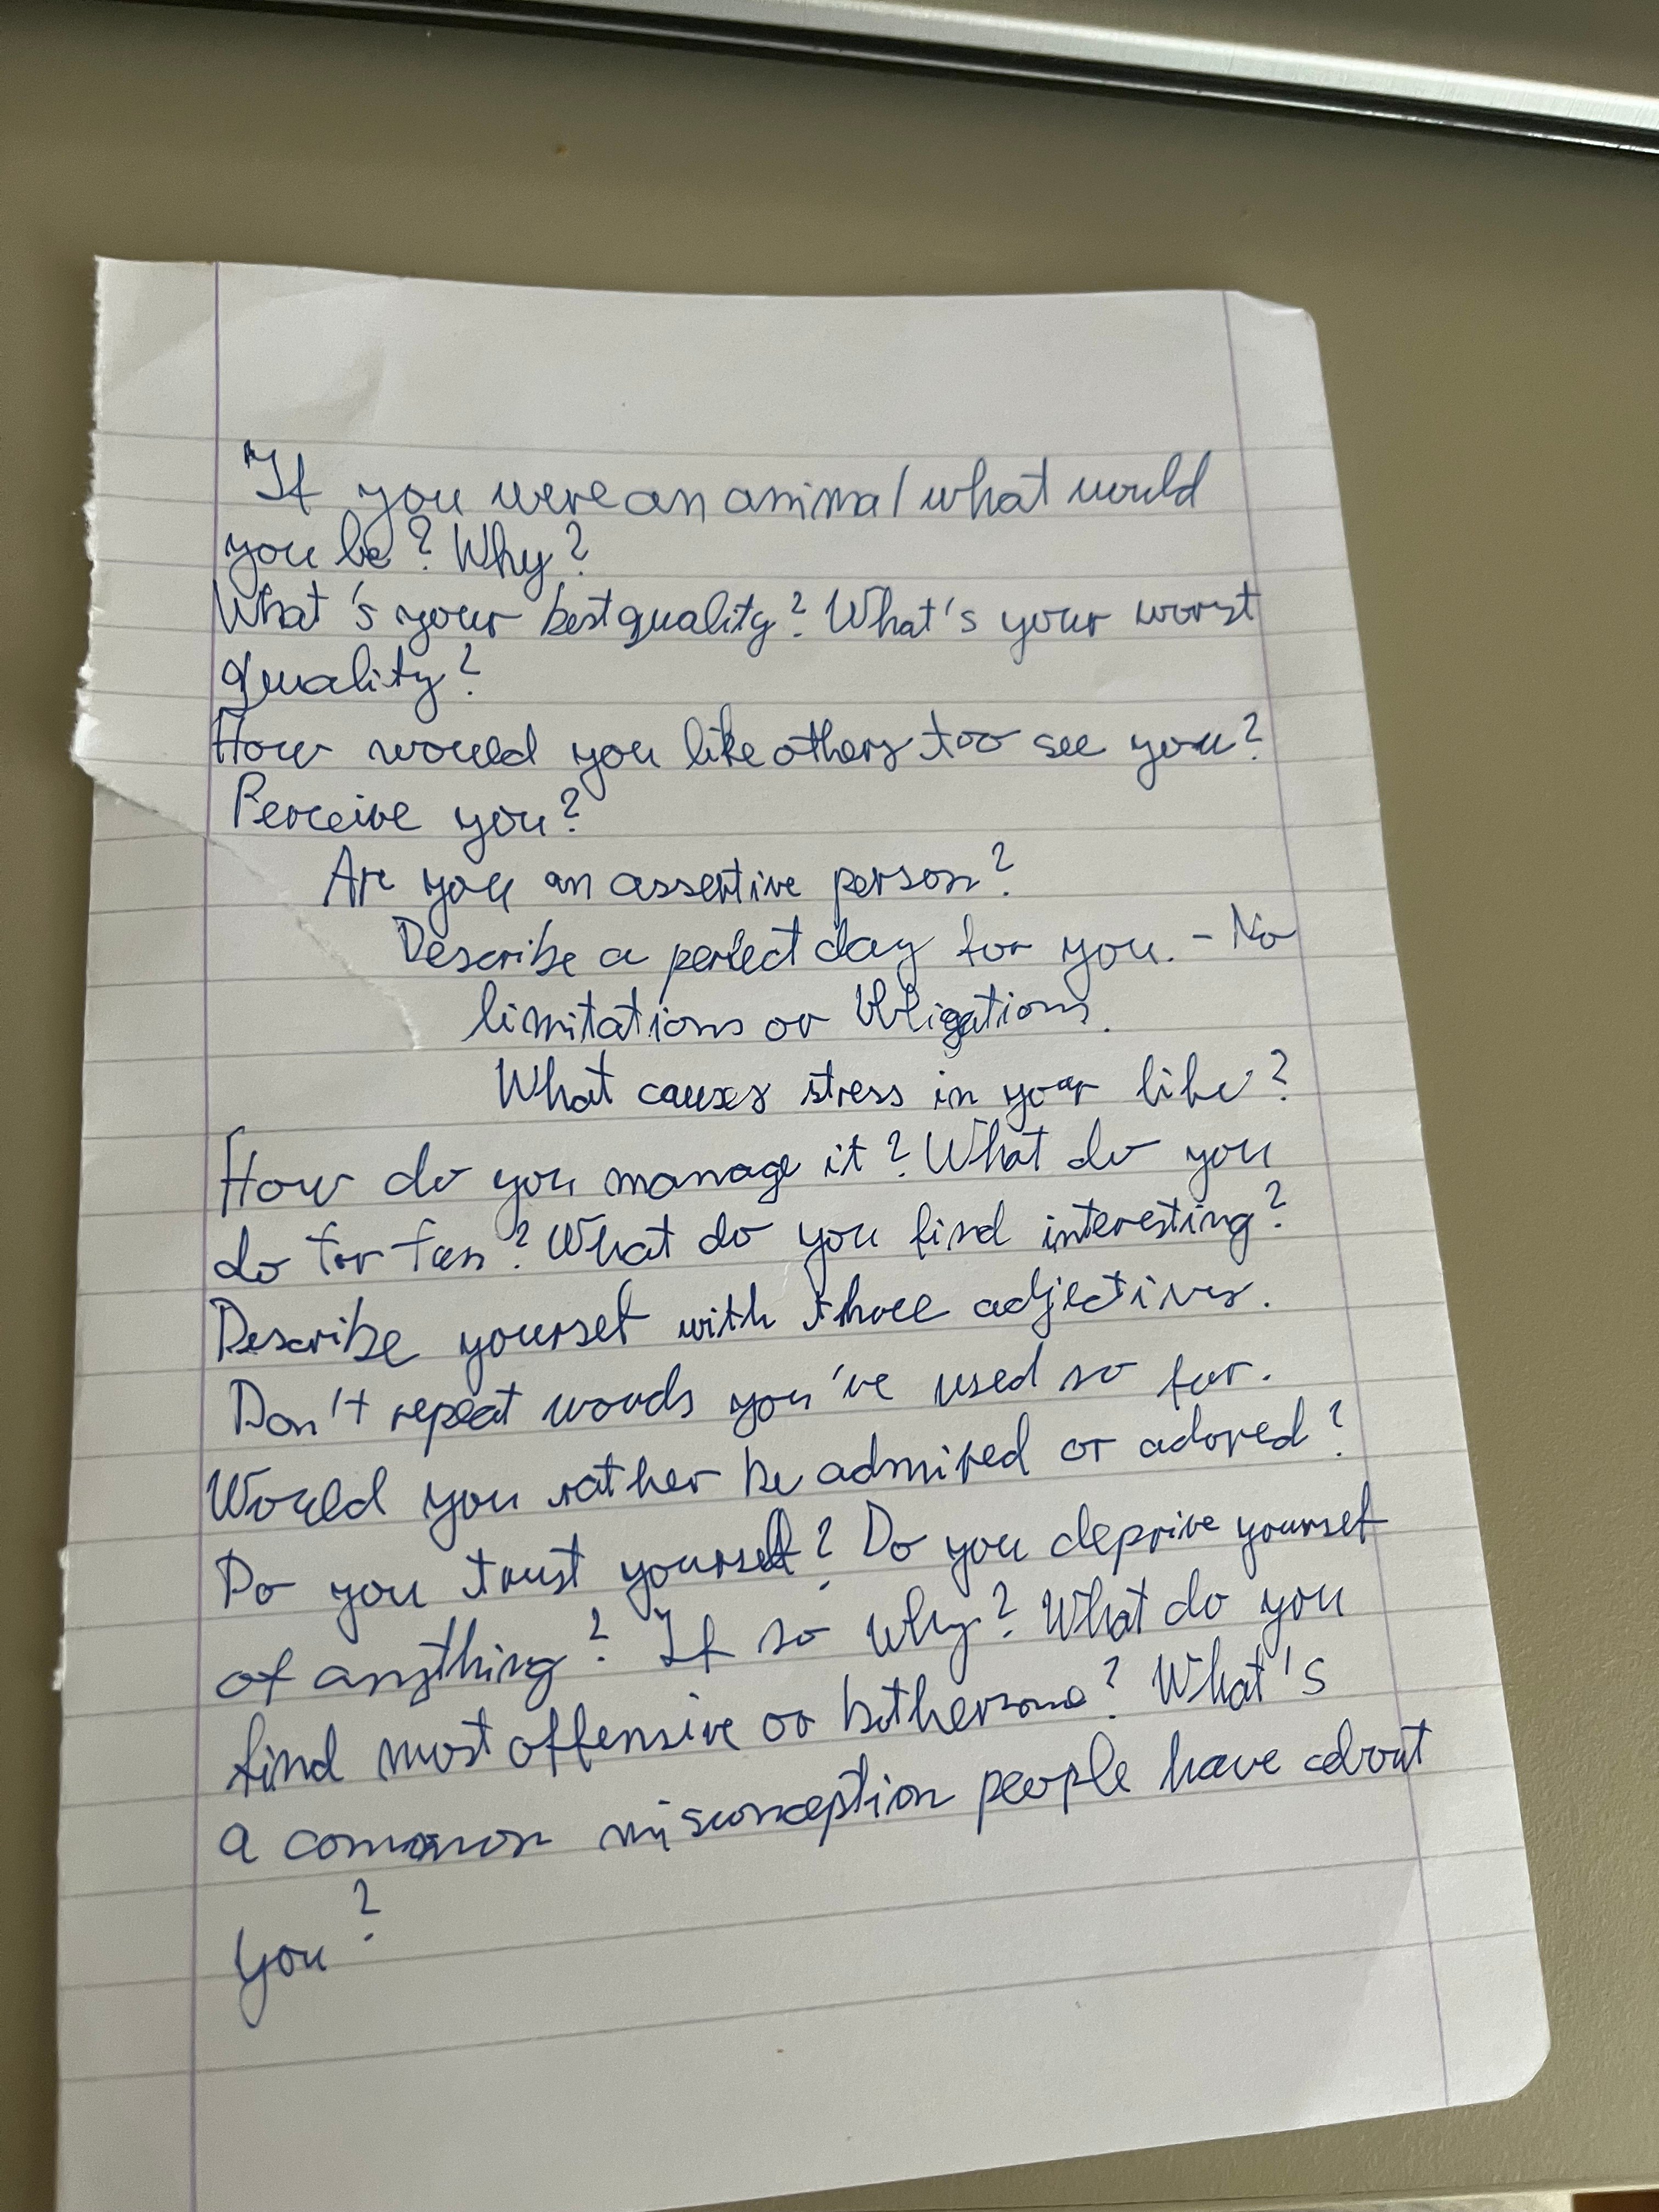 "If you were an animal what would
you be? Why?
What's your best quality? What's your worst
quality?
How would you like others too see you?
Perceive you?
Are you an assertive person?
Describe a perfect day for you. - No
limitations or obligations.
What causes stress in your life?
How do you manage it? What do you
do for fun? What do you find interesting?
Describe yourself with three adjectives.
Don't repeat words you've used so far.
Would you rather be admired or adored?
Do you trust yourself? Do you deprive yourself
of anything? If so why? What do you
find most offensive or bothersome? What's
a common misconception people have about
you?